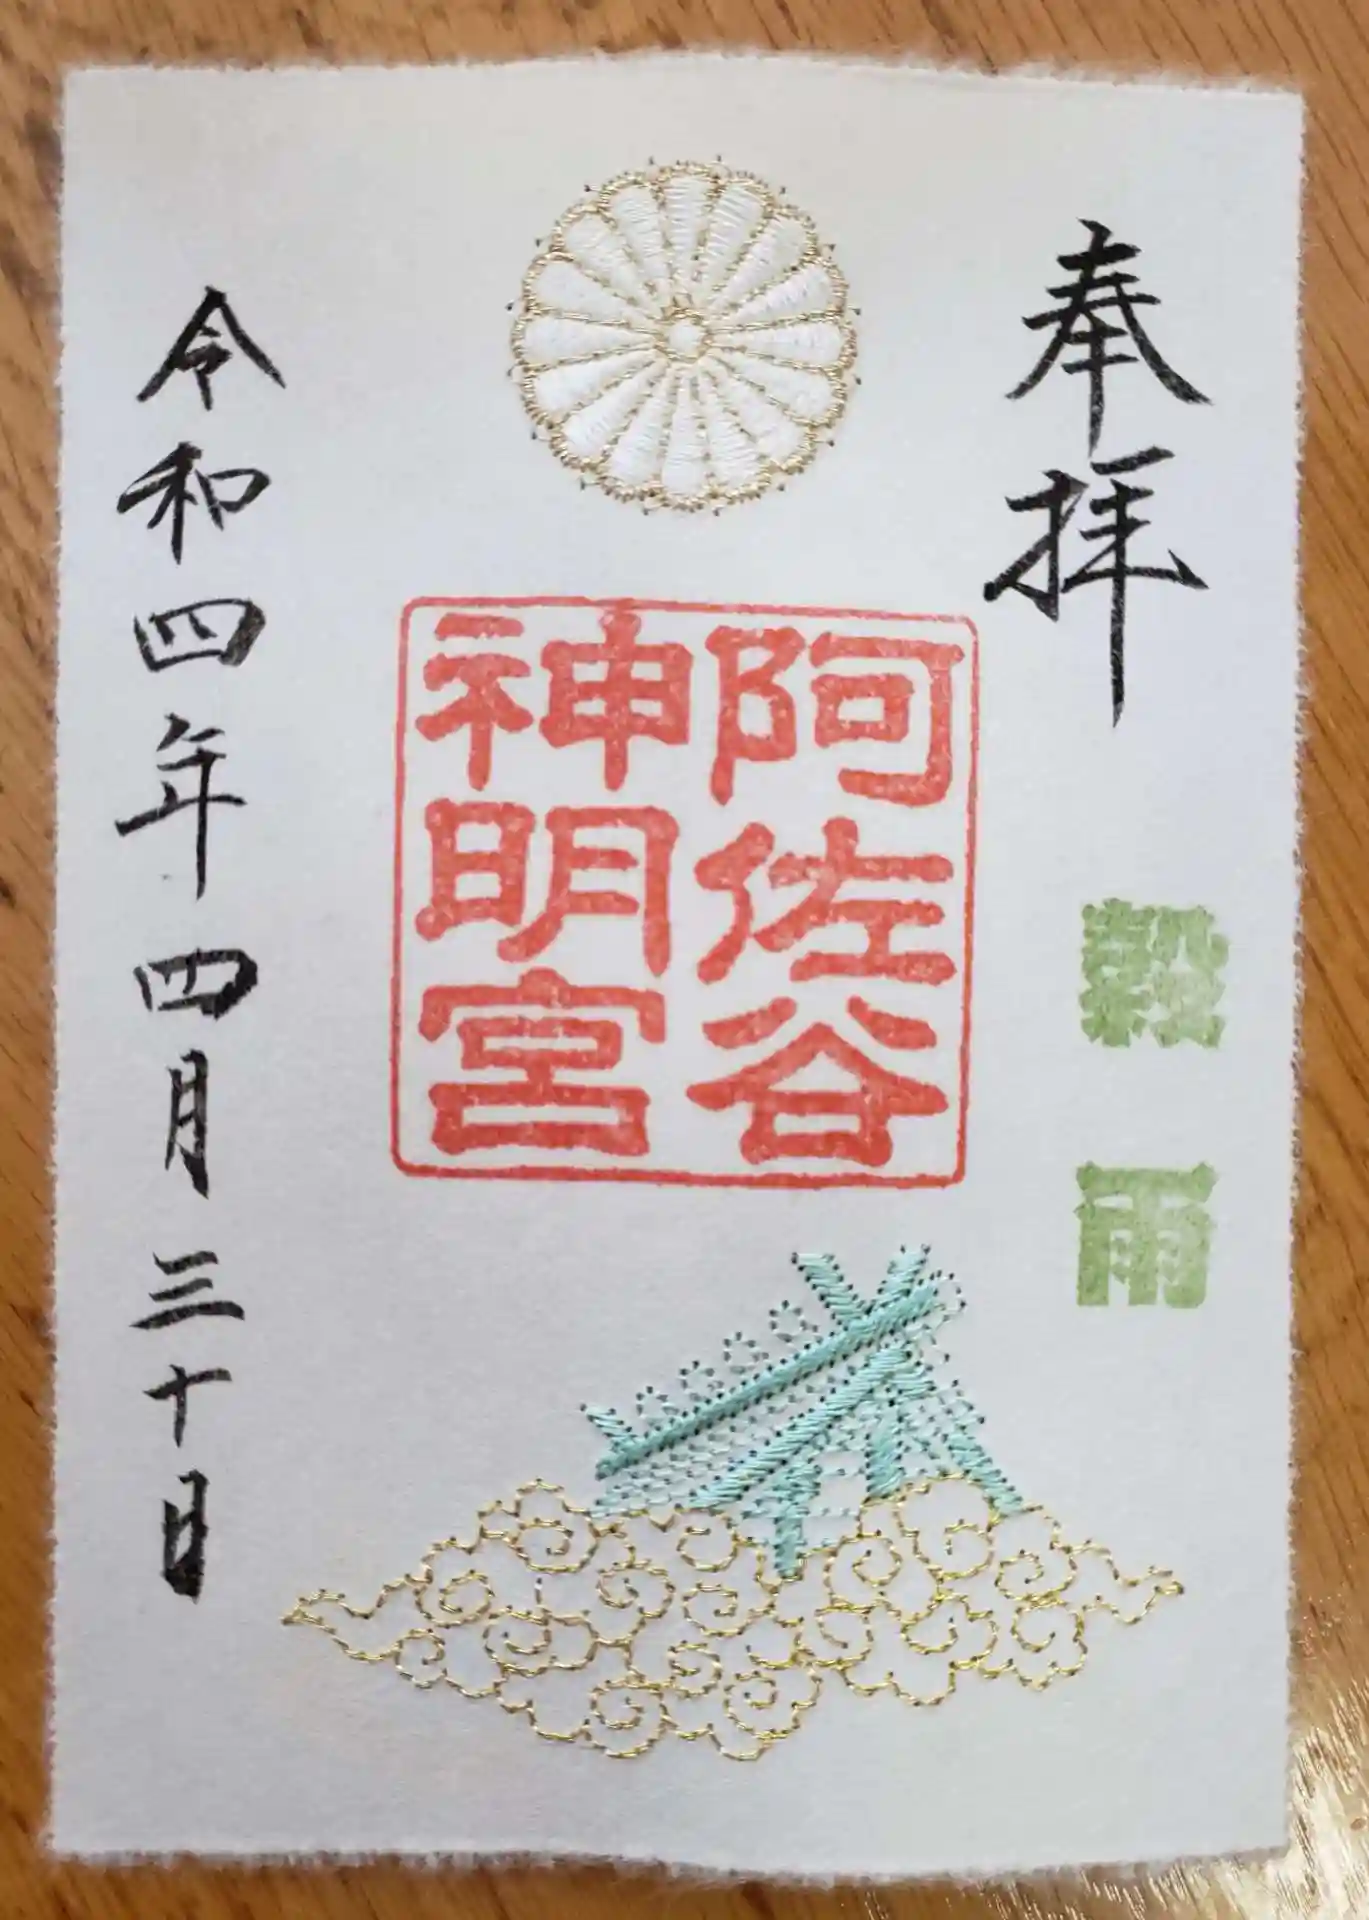 奉拝
穀雨
阿佐谷
神明宮
令和四年四月三十日